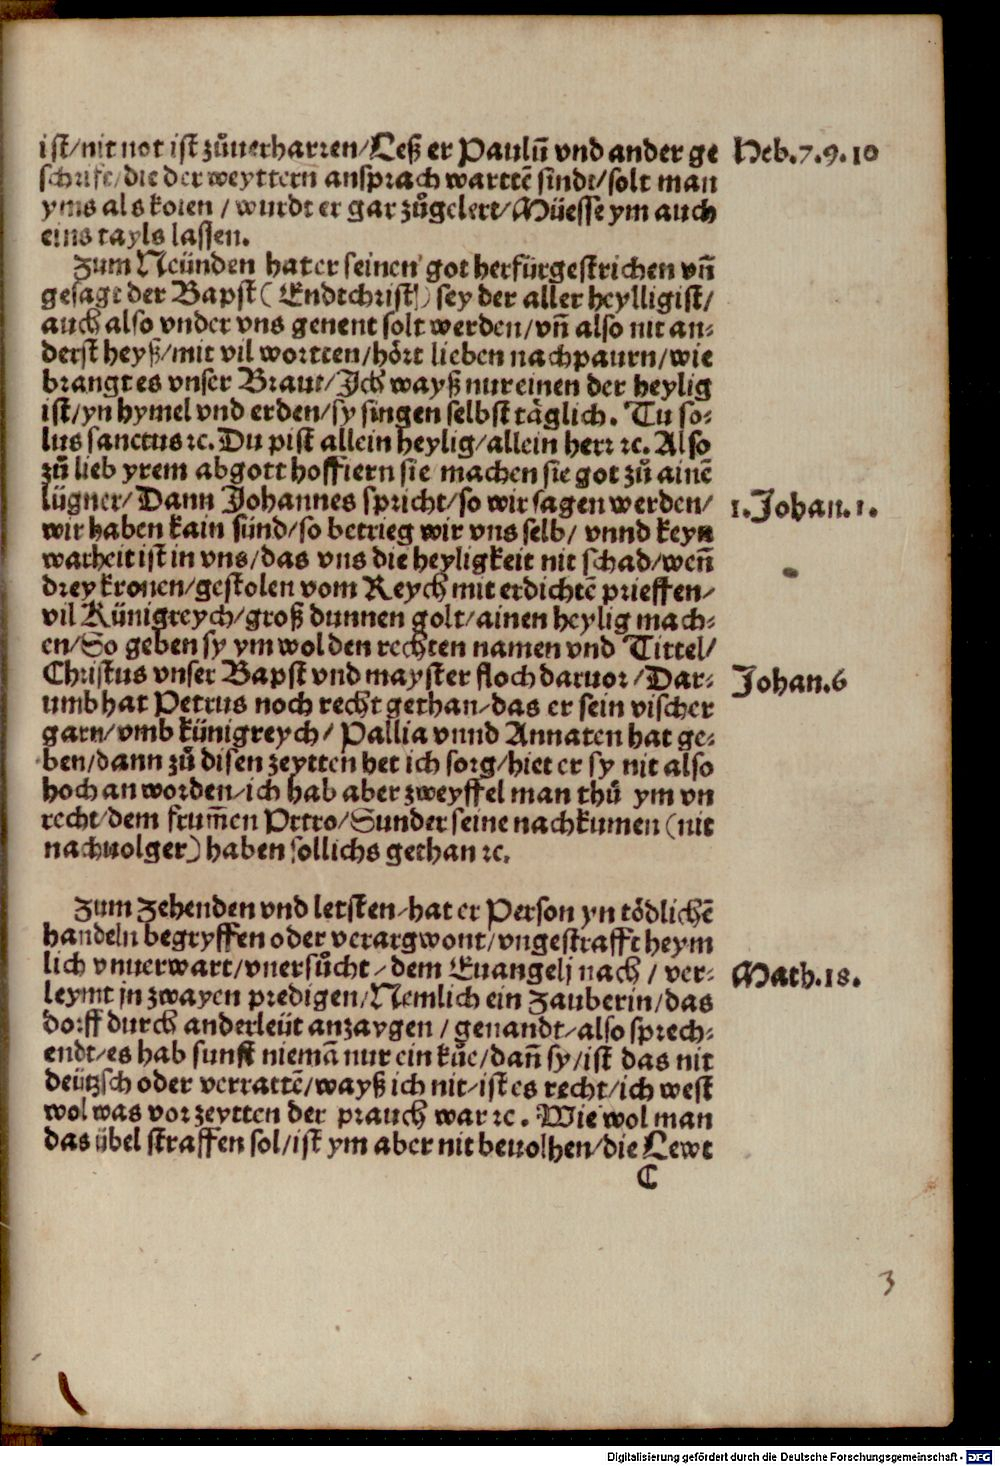 ist/nit not ist zůuerharren/Leß er Paulū vnd ander ge
Heb.7.9.10
schrift/die der weyttern ansprach warttē sindt/solt man
yms als koien/wurdt er gar zůgelert/Müesse ym auch
eins tayls lassen.
Zum Neünden hat er seinen got herfürgestrichen vñ
gesagt der Bapst (Endtchrist) sey der aller heylligist/
auch also vnder vns genent solt werden/vñ also nit an⸗
derst heyß/mit vil wortten/hört lieben nachpaurn/wie
brangt es vnser Braut/Ich wayß nur einen der heylig
ist/yn hymel vnd erden/sy singen selbst täglich. Tu so⸗
lus sanctus ꝛc. Du pist allein heylig/allein herr ꝛc. Also
zů lieb yrem abgott hoffiern sie machen sie got zů ainē
lügner/Dann Johannes spricht/so wir sagen werden/
1.Johan.1.
wir haben kain sünd/so betrieg wir vns selb/ vnnd keyn
warheit ist in vns/das vns die heyligkeit nit schad/weñ
drey kronen/gestolen vom Reych mit erdichtē prieffen/
vil Künigreych/groß dunnen golt/ainen heylig mach⸗
en/So geben sy ym wol den rechten namen vnd Tittel/
Christus vnser Bapst vnd mayster floch daruor/Dar⸗
Johan.6
umb hat Petrus noch recht gethan/das er sein vischer
garn/vmb künigreych/ Pallia vnnd Annaten hat ge⸗
ben/dann zů disen zeytten het ich sorg/hiet er sy nit also
hoch an worden/ich hab aber zweyffel man thů ym vn
recht/dem frum̄en Petro/Sunder seine nachkumen (nit
nachuolger) haben sollichs gethan ꝛc.
Zum Zehenden vnd letsten/hat er Person yn tödlichē
handeln begryffen oder verargwont/vngestrafft heym
lich vnuerwart/vnersůcht/dem Euangelj nach/ ver⸗
Math.18.
leymt jn zwayen predigen/Nemlich ein Zauberin/das
dorff durch ander leüt anzaygen/genandt/also sprech⸗
endt/es hab sunst niemā nur ein kůe/dañ sy/ist das nit
deützsch oder verrattē/wayß ich nit/ist es recht/ich west
wol was vor zeytten der prauch war ꝛc. Wie wol man
das übel straffen sol/ist ym aber nit beuolhen/die Lewt
C
3
Digitalisierung gefördert durch die Deutsche Forschungsgemeinschaft - DFG